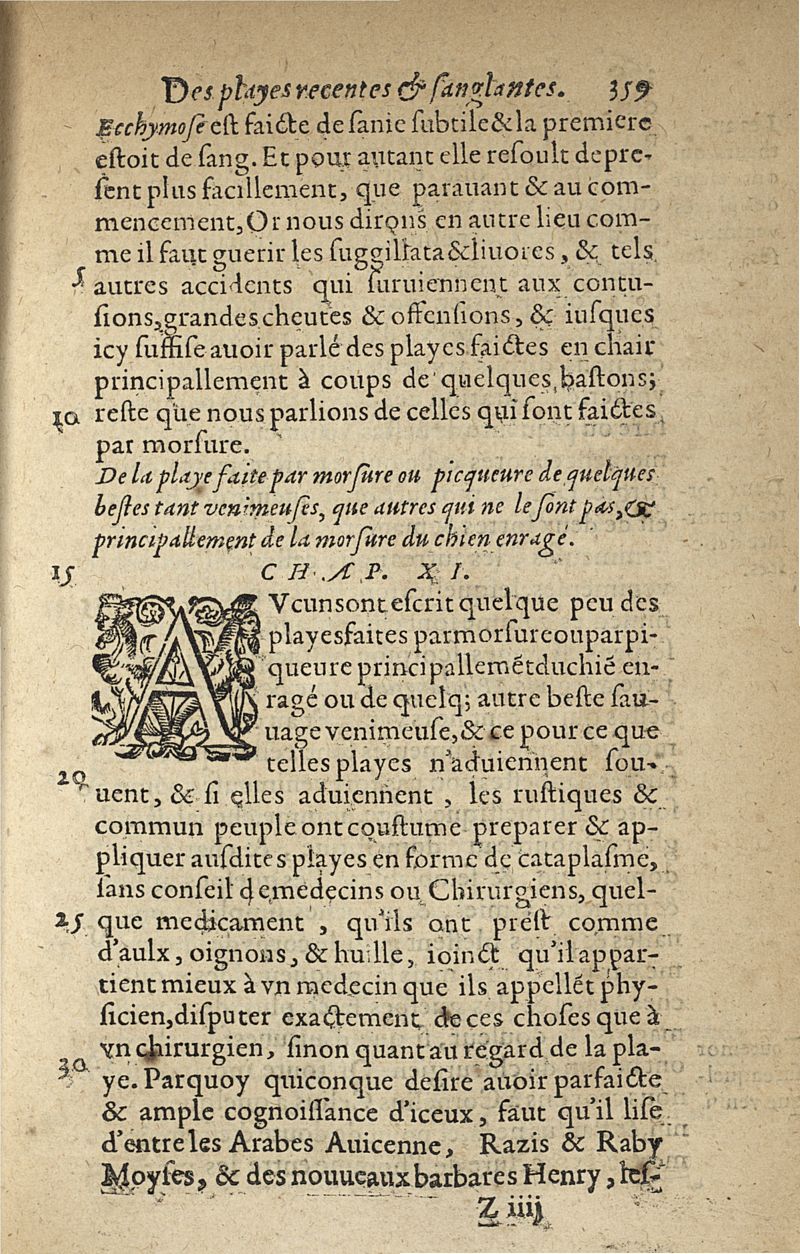 Des playes recentes & sanglantes. 359
Ecchymose est faicte de sanie subtile & la premiere
estoit de sang. Et pour autant elle resoult depre-
sent plus facillement, que parauant & au com-
mencement, Or nous dirons en autre lieu com-
me il faut guerir les suggillata & liuores, & tels
5 autres accidents qui suruiennent aux contu-
sions, grandes cheutes & offensions, & iusques
icy suffise auoir parlé des playes faictes en chair
principallement à coups de quelques bastons;
10 reste que nous parlions de celles qui sont faictes
par morsure.
De la playe faite par morsure ou picqueure de quelques
bestes tant venimeuses, que autres qui ne le sont pas, &
principallement de la morsure du chien enragé.
15 CHAP. XI.
AVcuns ont escrit quelque peu des
playes faites par morsure ou par pi-
queure principallemẽt du chiẽ en-
ragé ou de quelq; autre beste sau-
uage venimeuse, & ce pour ce que
telles playes n'aduiennent sou-
20 uent, & si elles aduiennent, les rustiques &
commun peuple ont coustume preparer & ap-
pliquer ausdites playes en forme de cataplasme,
sans conseil de medecins ou Chirurgiens, quel-
25 que medicament, qu'ils ont prest comme
d'aulx, oignons, & huille, ioinct qu'il appar-
tient mieux à vn medecin que ils appellẽt phy-
sicien, disputer exactement de ces choses que à
vn chirurgien, sinon quant au regard de la pla-
30 ye. Parquoy quiconque desire auoir parfaicte
& ample cognoissance d'iceux, faut qu'il lise
d'entre les Arabes Auicenne, Razis & Raby
Moyses, & des nouueaux barbares Henry, les-
Z iiij